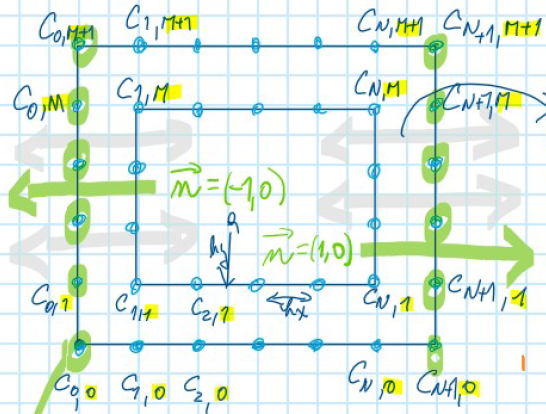 C0,M+1 C1,M+1 CN,M+1 CN+1,M+1
C0,M C1,M CN,M CN+1,M
n=(-1,0)
hy n=(1,0)
hx
C0,1 C1,1 C2,1 CN,1 CN+1,1
C0,0 C1,0 C2,0 CN,0 CN+1,0